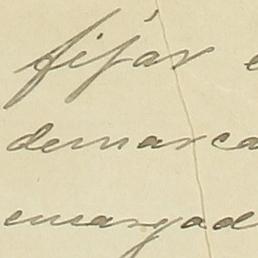 fijár e
demarca
encargad